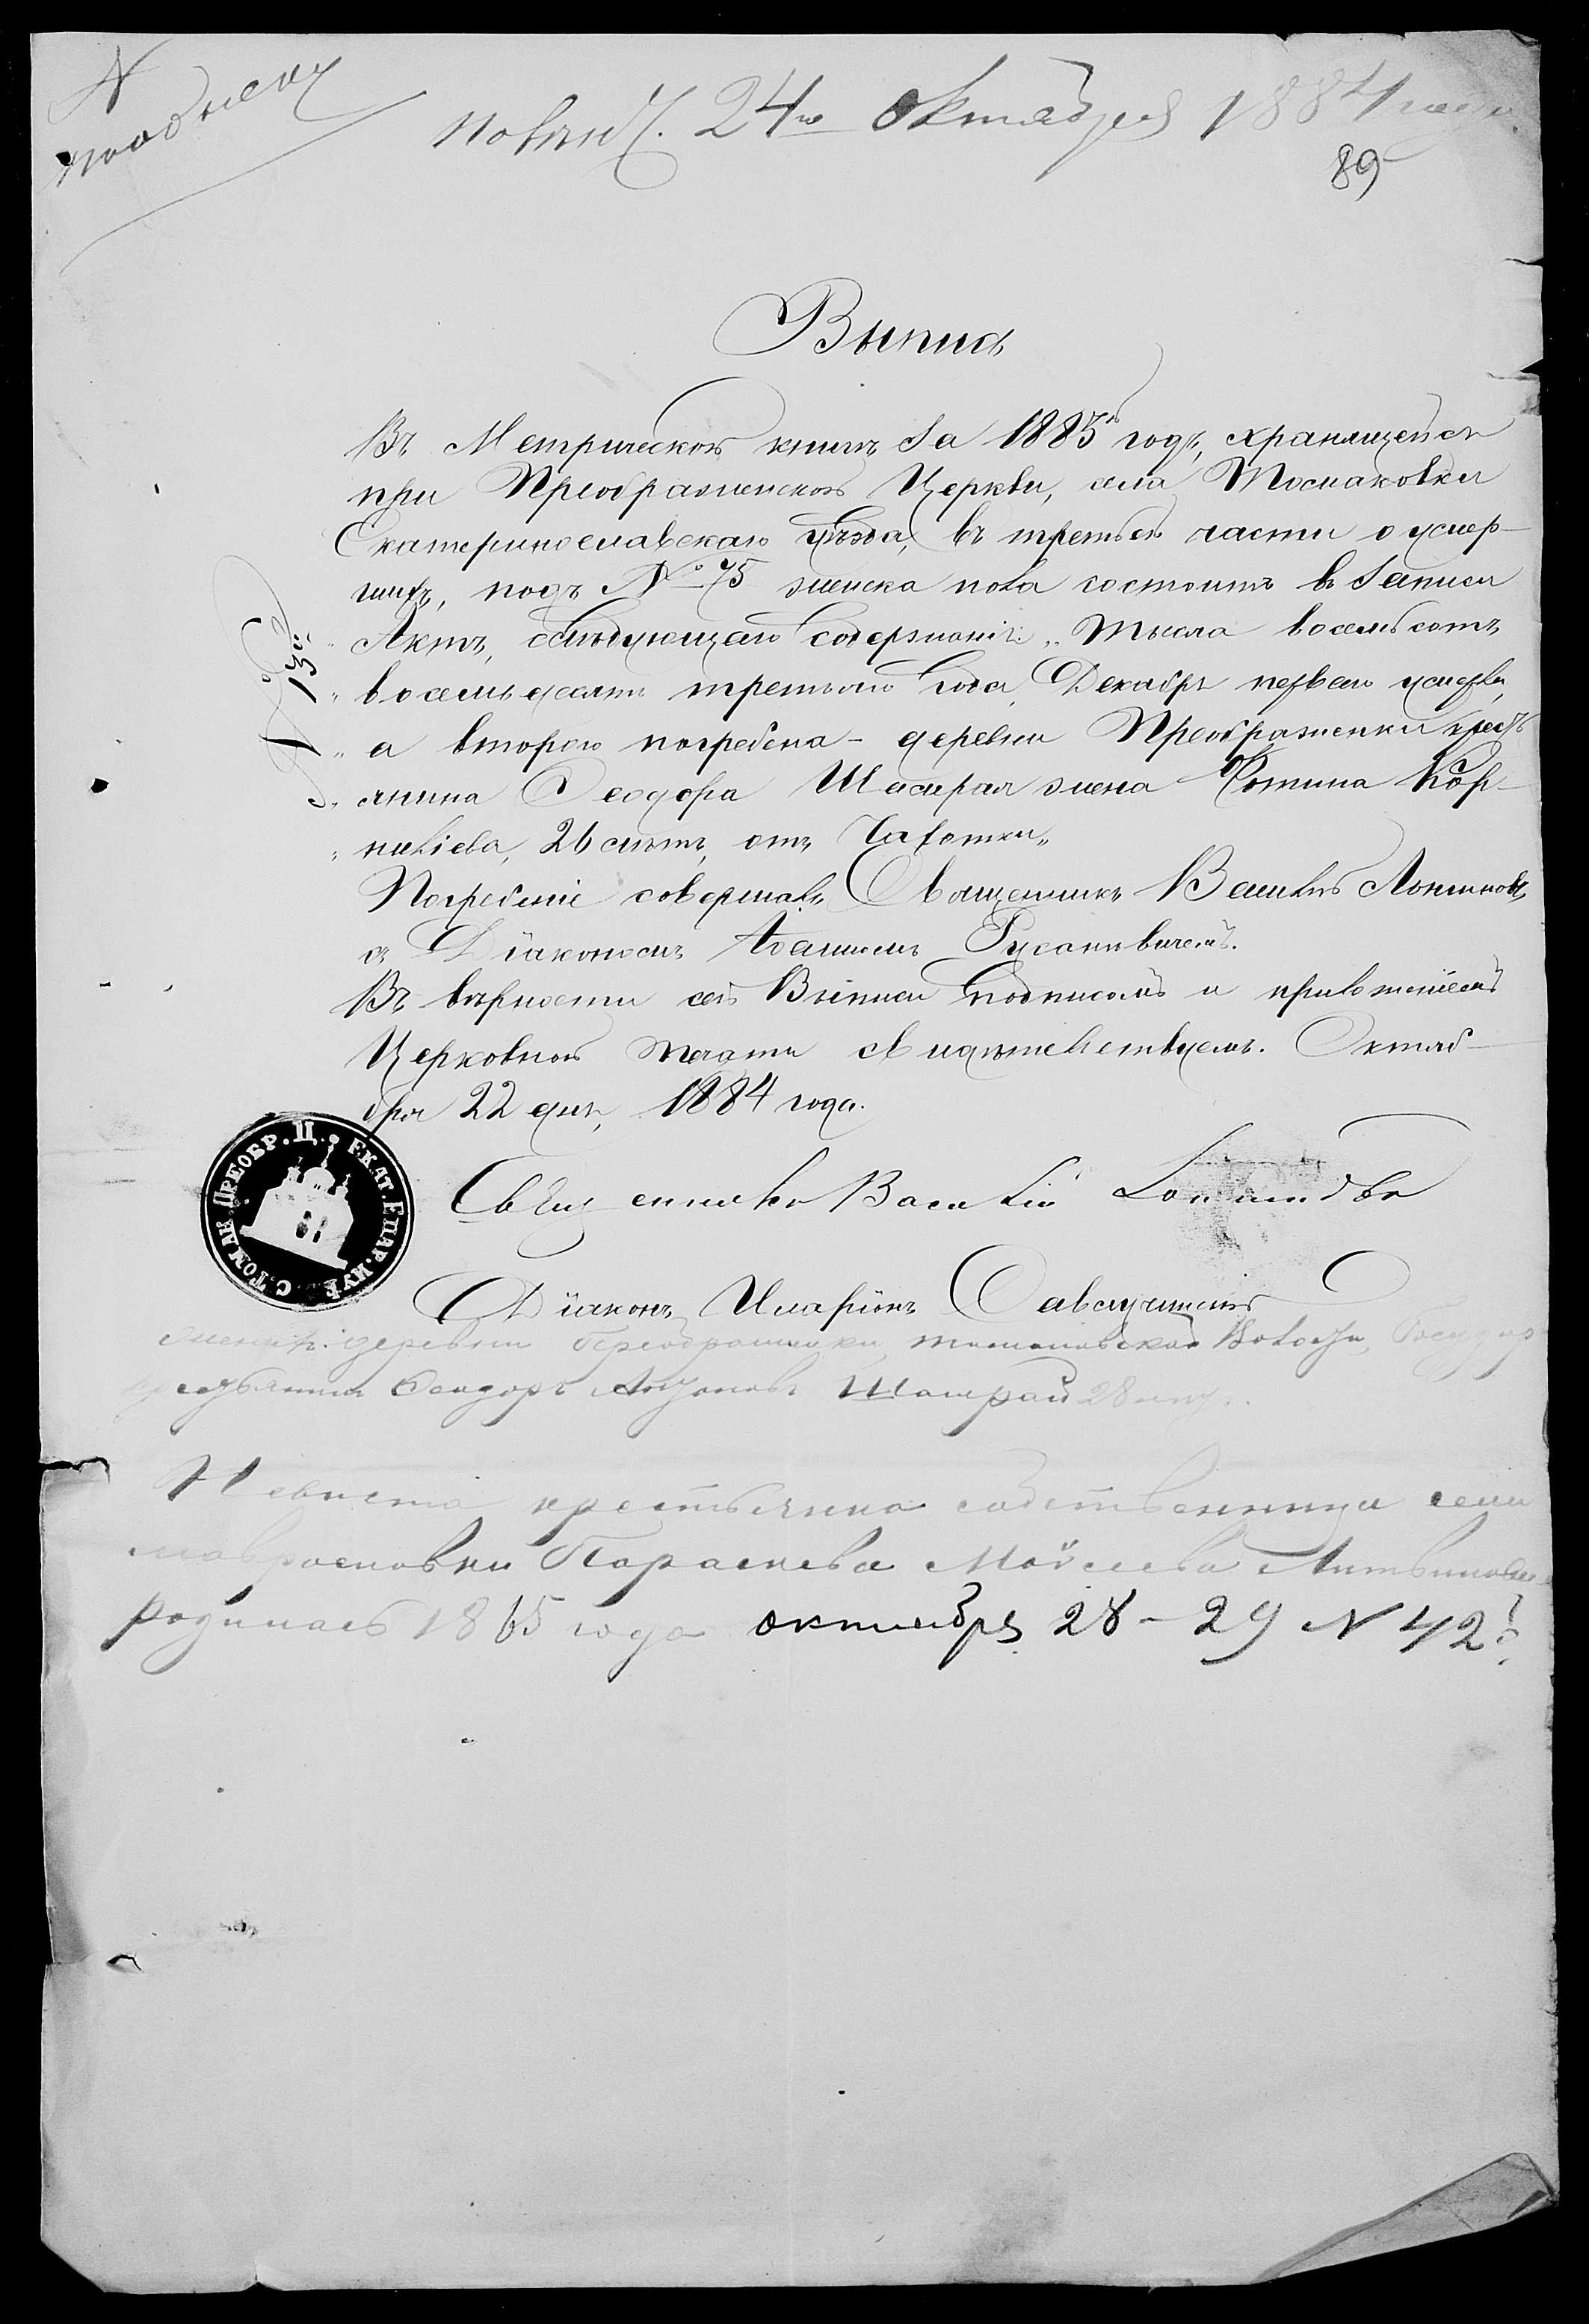 N
повѣнч. 24го октября 1884 года
89
Выпись
Въ Метрической книгѣ за 1883й годъ, хранящейся
при Преображенской Церкви, села Томаковки
Екатеринославскаго уѣзда, въ третьей части о умер-
шихъ, подъ № 75 женска пола состоитъ въ записи
Актъ, слѣдующаго содержанія: „Тысяча восемьсотъ
„восемьдесятъ третьяго года, Декабря перваго умерла,
„а втораго погребена - деревни Преображенки кресть
„янина Ѳеодора Шамрая жена Фотина Кор-
„ниліева, 26 лѣтъ, отъ Чахотки„
Погребеніе совершалъ Священникъ Василій Логиновъ,
съ Діакономъ
Въ вѣрности сей Выписи подписомъ и приложеніемъ
Церковной печати свидѣтельствуемъ. Октяб-
бря 22 дня, 1884 года.
№ 132
С. ТОМАК. ПРЕОБР. Ц. ЕКАТ. ЕПАР.
Священникъ Василій Логиновъ
Діаконъ Иларіонъ
деревни Преображенки, томаковской Волости,
крестьянинъ Ѳеодоръ Шамрай 28 лѣтъ.
Невѣста крестьянка собственница села
Параскева Моисеева Литвинова
родилась 1865 года октября 28 - 29 N 42